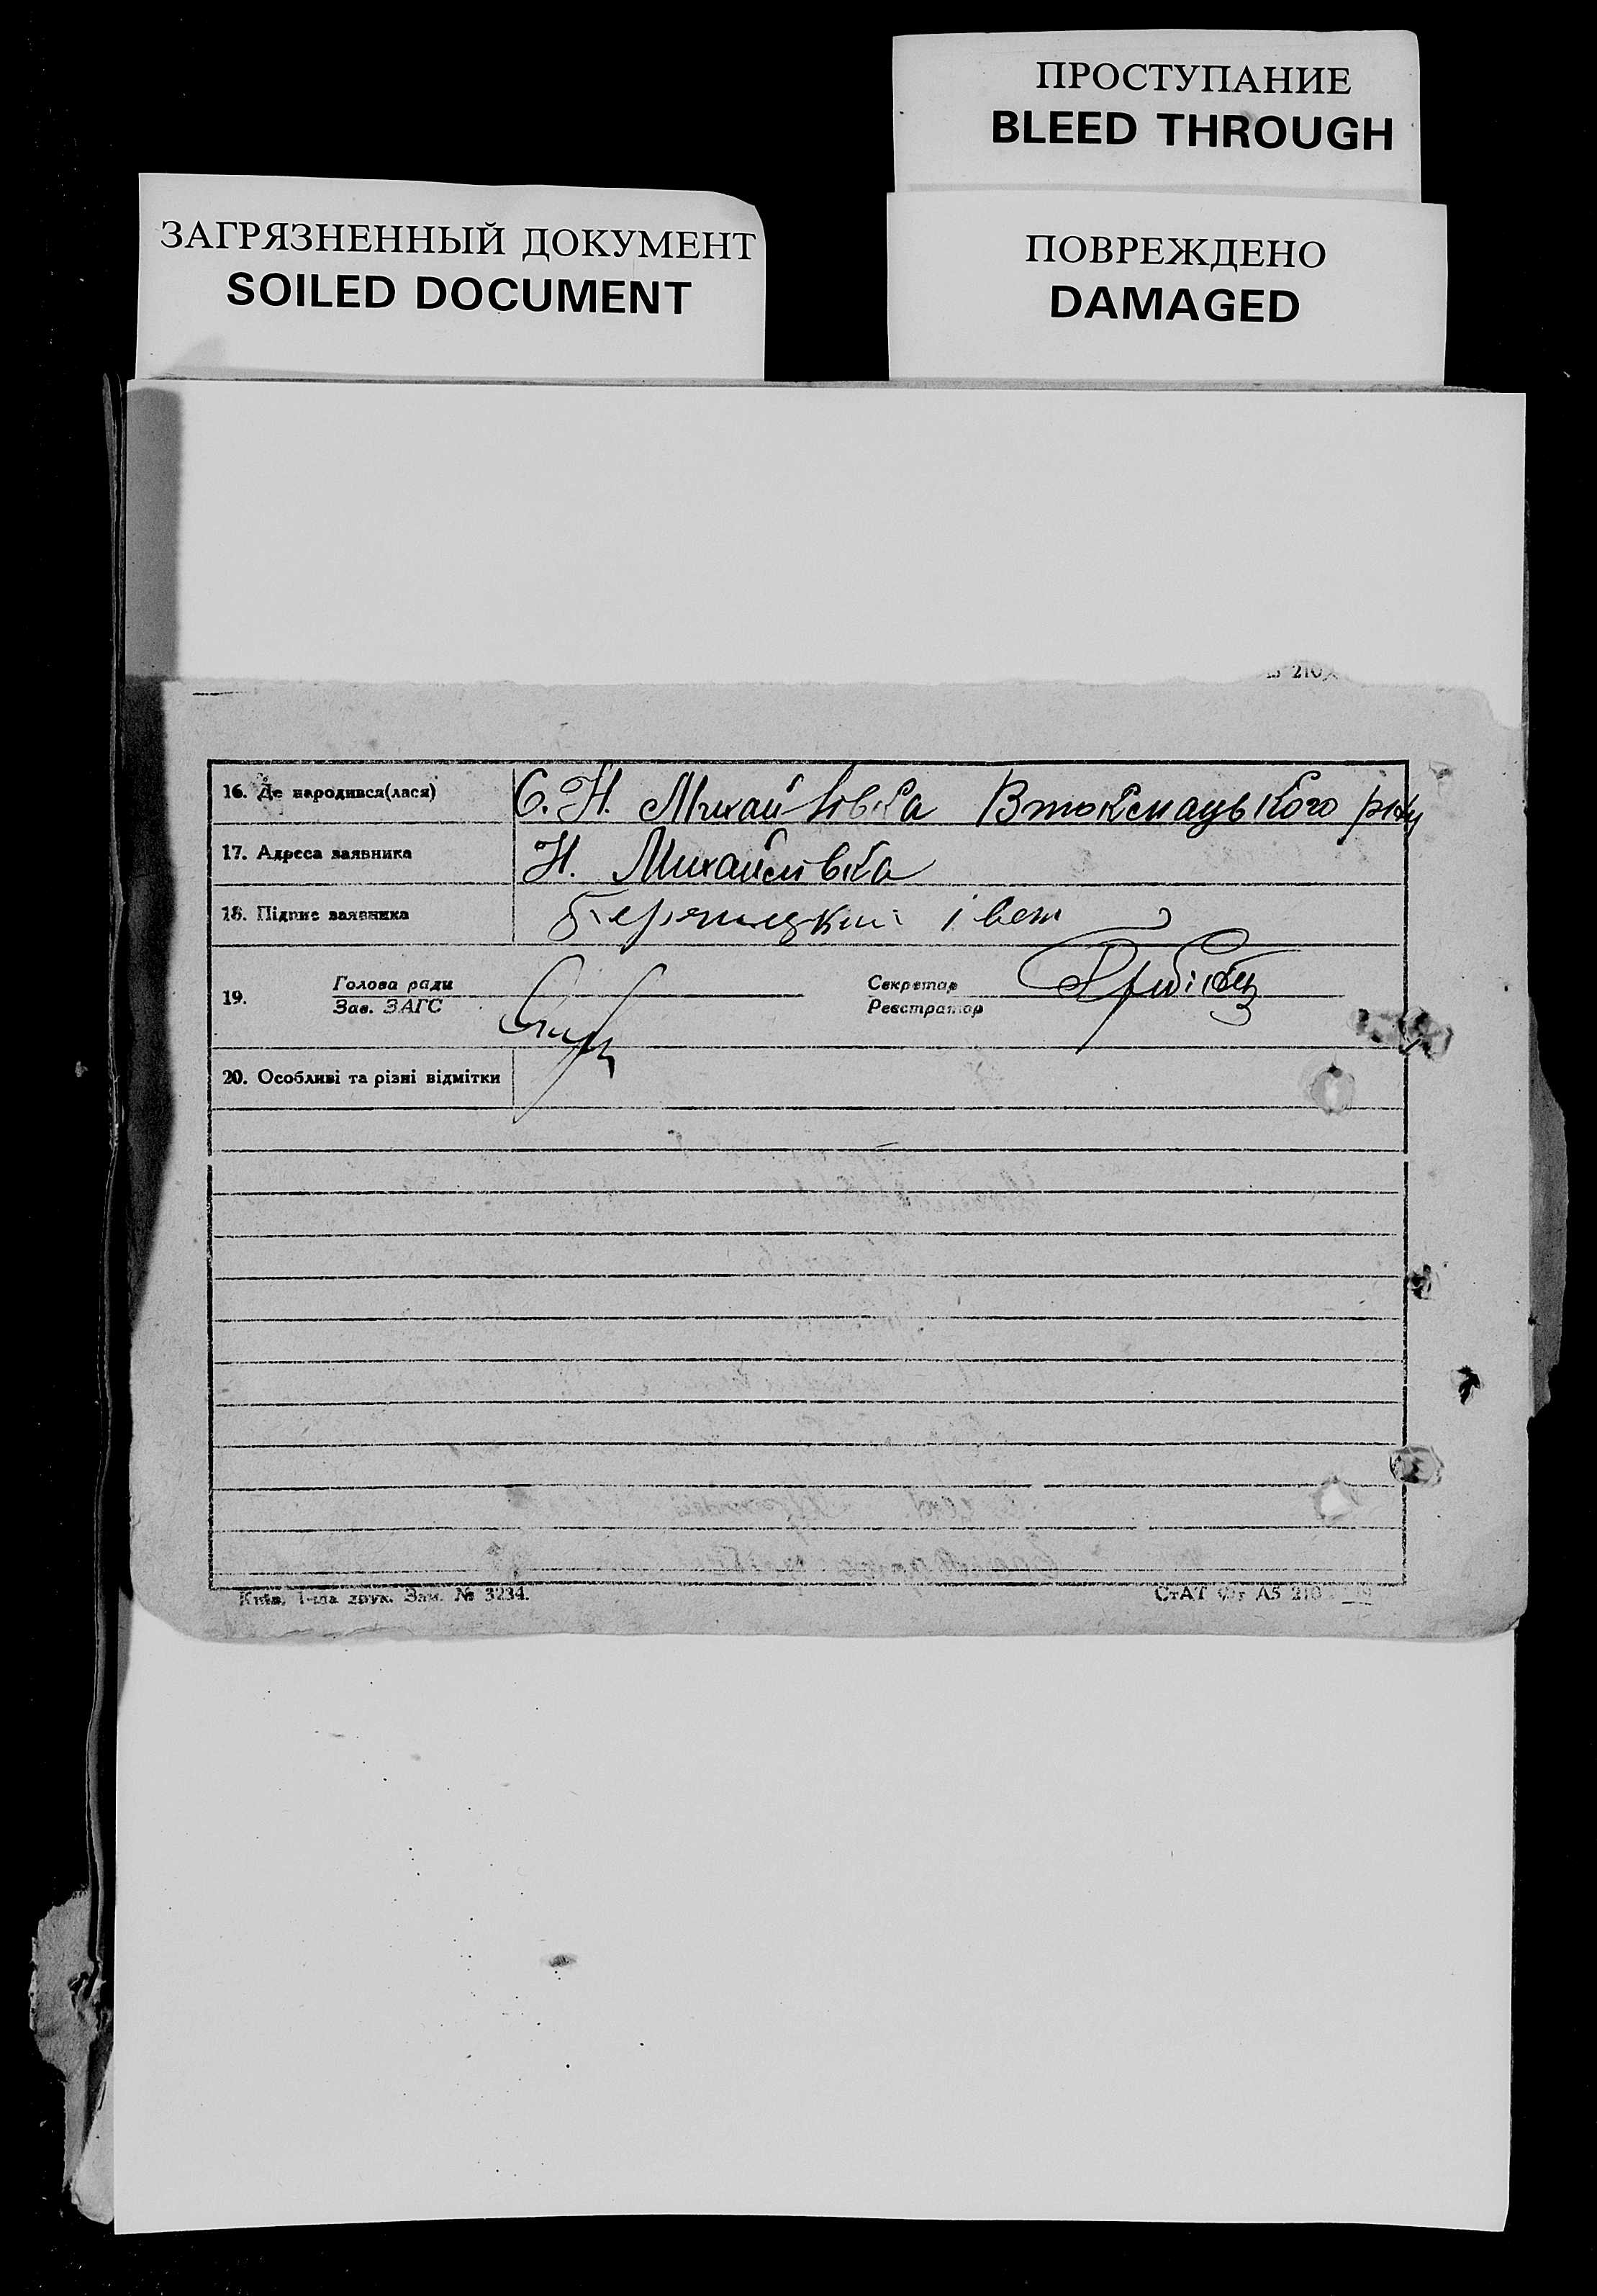 ПРОСТУПАНИЕ
BLEED THROUGH
ЗАГРЯЗНЕННЫЙ ДОКУМЕНТ
SOILED DOCUMENT
ПОВРЕЖДЕНО
DAMAGED
210
16. Де народився(лася) С. Н. Михайлівка Втокмацького р-ну
17. Адреса заявника Н. Михайлівка
18. Підпис заявника
19. Голова ради Секретар
Зав. ЗАГС Реєстратор
20. Особливі та різні відмітки
Київ, 1-ша друк. Зам. № 3234. СтАТ Фг А5 210